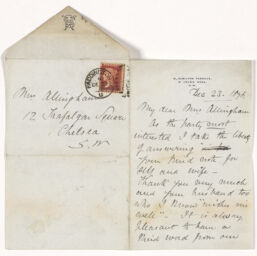 Mrs Allingham
12 Trafalgar Square
Chelsea
S.W
Dec 23. 1876
My dear Mrs Allingham
As the party most
interested I take the liberty
of answering
your kind note for
self and wife –
Thank you very much
and your husband too
who I know "wishes me
well". It is always
pleasant to have a
kind word from one